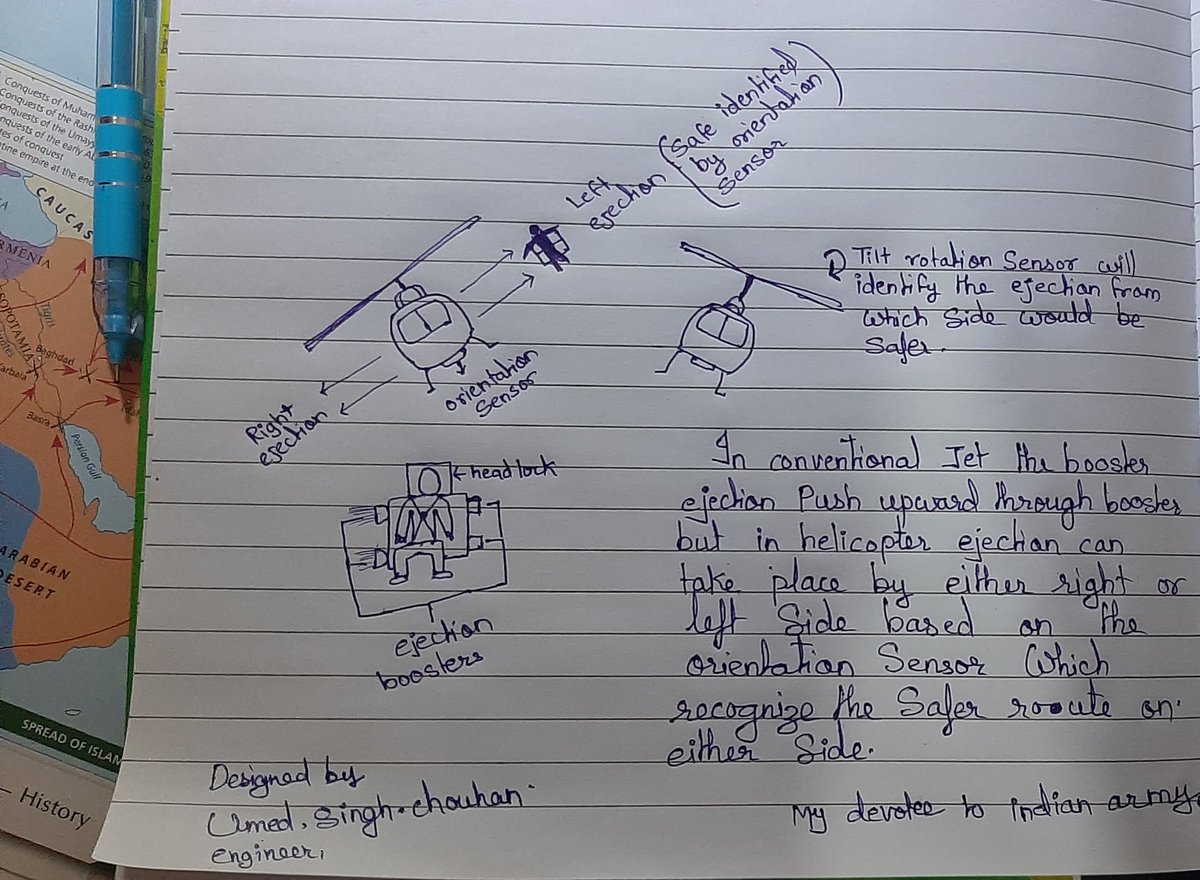 Conquests of Muham
Conquests of the Rash
onquests of the Umay
nquests of the early A
tes of conquest
tine empire at the end
CAUCAS
RMENIA
OPOTAMIA
Tigris
Baghdad
Karbala
Basra
Persian Gulf
ARABIAN
DESERT
SPREAD OF ISLAM
History
(Safe identified
by orientation
Sensor)
Left
ejection
Tilt rotation Sensor will
identify the ejection from
which Side would be
Safer.
orientation
Sensor
Right
ejection
head lock
ejection
boosters
In conventional Jet the booster
ejection Push upward through booster
but in helicopter ejection can
take place by either right or
left Side based on the
orientation Sensor Which
recognize the Safer rooute on
either Side.
Designed by
Umed. Singh. chouhan.
engineer,
My devotee to indian army